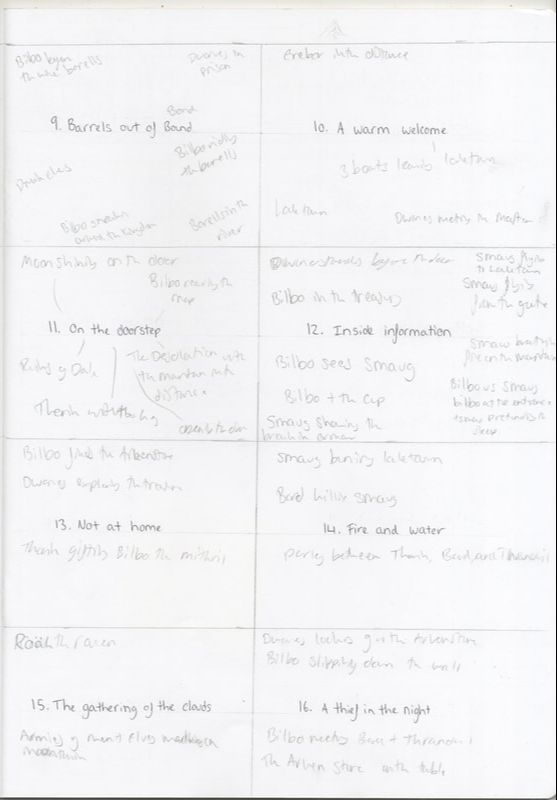 Bilbo
the wine barells
Dwarves in
prison
9. Barrels out of Bond
Bond
Bilbo riding
the barells
Bilbo
around the kingdom
Barells in the
river
Erebor in the distance
10. A warm welcome
3 boats leaving laketown
Laketown
Dwarves meeting the Master
Moon shining on the door
Bilbo reading the
map
11. On the doorstep
Ruins of Dale
The Desolation with
the mountain in the
distance
Thorin with the key
open the door
Bilbo in the treasury
Smaug flying
to Laketown
Smaug flying
from the gate
12. Inside information
Bilbo sees Smaug
Bilbo + the cup
Smaug showing the
Smaug
fire on the mountain
Bilbo vs Smaug
bilbo at the entrance
+ smaug pretending to
sleep
Bilbo finds the Arkenstone
Dwarves exploring the
13. Not at home
Thorin gifting Bilbo the mithril
Smaug burning laketown
Bard kills smaug
14. Fire and water
parley between Thorin, Bard, and Thranduil
Roäc the raven
15. The gathering of the clouds
Armies of men + elves
mountain
Dwarves looking for the Arkenstone
Bilbo slipping down the wall
16. A thief in the night
Bilbo meeting Bard + Thranduil
The Arkenstone on the table